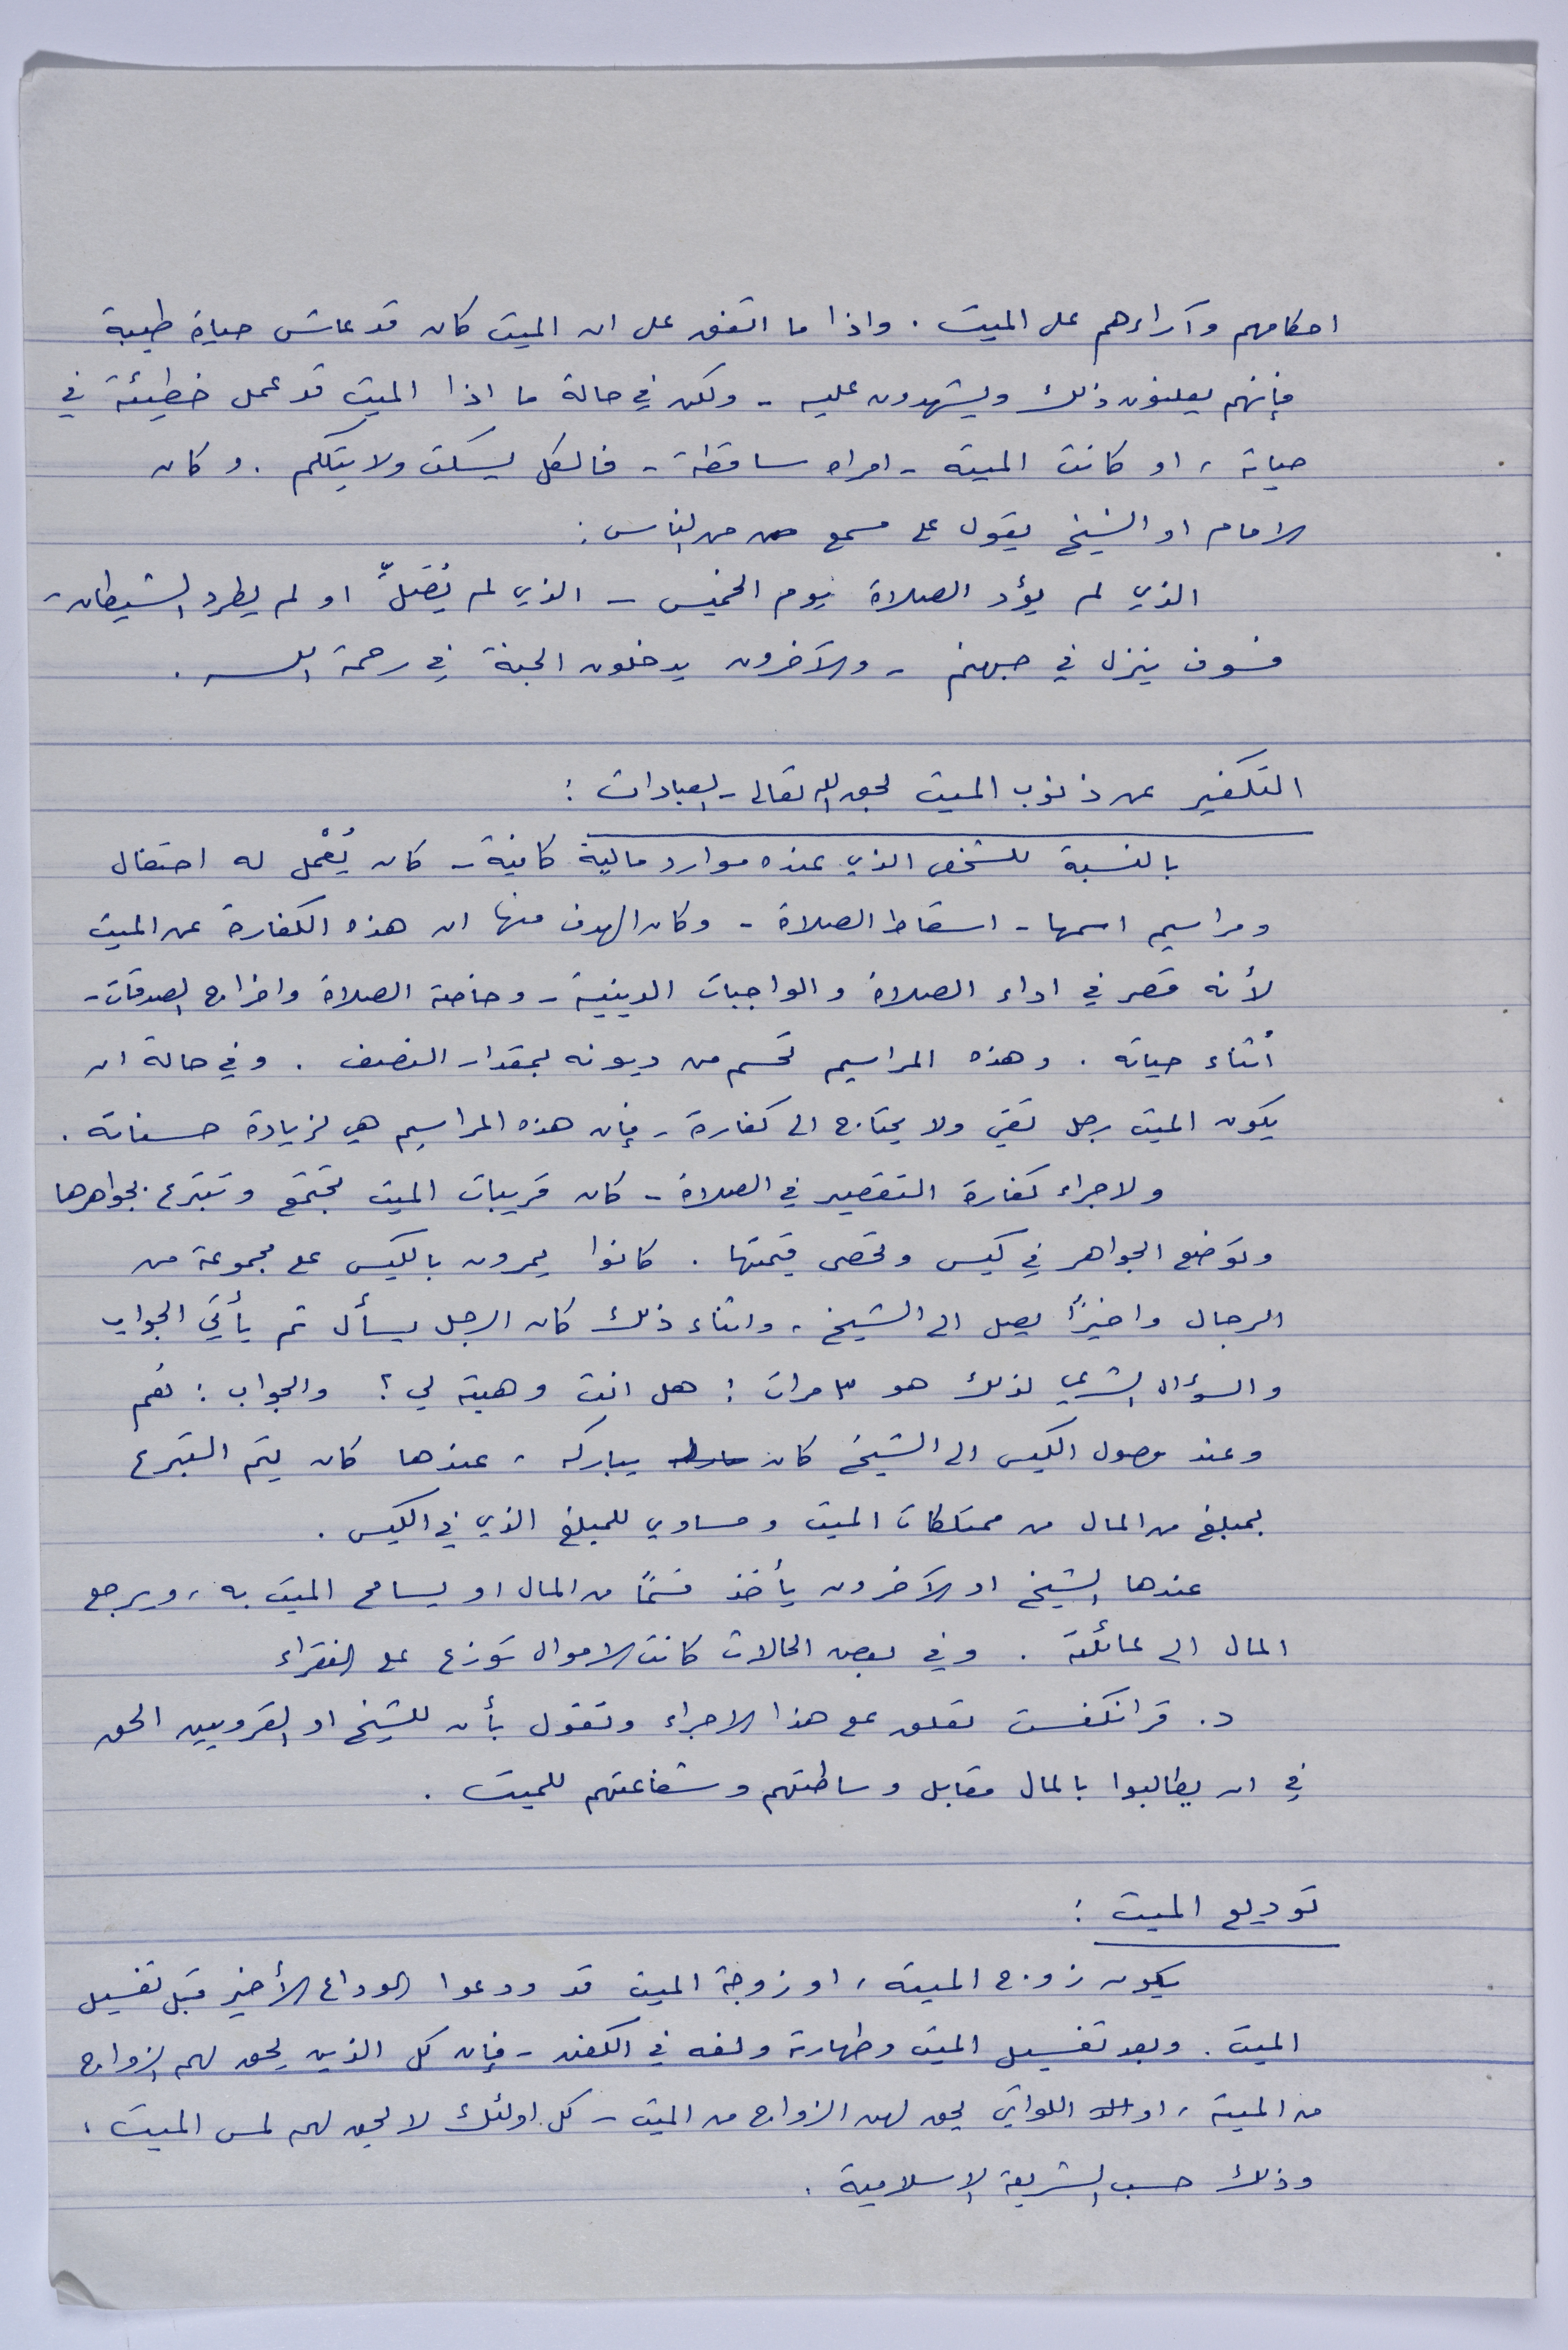 احكامهم وآراءهم على الميت . واذا ما اتفق على ان الميت كان قد عاش حياة طيبة
فإنهم يعلنون ذلك ويشهدون عليه - ولكن في حالة ما اذا الميت قد عمل خطيئة في
حياته ، او كانت الميته - امراه ساقطة - فالكل يسكت ولا يتكلم . وكان
الامام او الشيخ يقول على مسمع من الناس :
الذي لم يؤد الصلاة يوم الخميس - الذي لم يُصَلِّ او لم يطرد الشيطان -
فسوف ينزل في جهنم - والآخرون يدخلون الجنة في رحمة الله .
التكفير عن ذنوب الميت لحق الله تعالى - العبادات :
بالنسبة للشخص الذي عنده موارد مالية كافية - كان يُعْمل له احتفال
ومراسيم اسمها - اسقاط الصلاة - وكان الهدف منها ان هذه الكفارة عن الميت
لأنه قصر في اداء الصلاة والواجبات الدينية - وخاصة الصلاة واخراج الصدقات -
أثناء حياته . وهذه المراسيم تحسم من ديونه بمقدار النصف . وفي حالة ان
يكون الميت رجل تقي ولا يحتاج الى كفارة - فإن هذه المراسيم هي لزيادة حسناته .
ولاجراء كفارة التقصير في الصلاة - كان قريبات الميت تجتمع وتتبرع بجواهرها
وتوضع الجواهر في كيس وتحصى قيمتها . كانوا يمرون بالكيس على مجموعة من
الرجال واخيرًا يصل الى الشيخ ، واثناء ذلك كان الرجل يسأل ثم يأتي الجواب
والسؤال الشرعي لذلك هو ٣ مرات : هل انت وهبته لي ؟ والجواب : نعم
وعند وصول الكيس الى الشيخ كان يباركه ، عندها كان يتم التبرع
بمبلغ من المال من ممتلكات الميت ومساوي للمبلغ الذي في الكيس .
عندها الشيخ او الآخرون يأخذ قسمًا من المال او يسامح الميت به ، ويرجع
المال الى عائلته . وفي بعض الحالات كانت الاموال توزع على الفقراء
د. قرانكفست تعلق على هذا الاجراء وتقول بأن للشيخ او القرويين الحق
في ان يطالبوا بالمال مقابل وساطتهم وشفاعتهم للميت .
توديع الميت :
يكون زوج الميته ، او زوجة الميت قد ودعوا الوداع الأخير قبل تغسيل
الميت . وبعد تغسيل الميت وطهارته ولفه في الكفن - فإن كل الذين يحق لهم الزواج
من الميته ، او اللواتي يحق لهن الزواج من الميت - كل اولئك لا يحق لهم لمس الميت ،
وذلك حسب الشريعة الاسلامية .